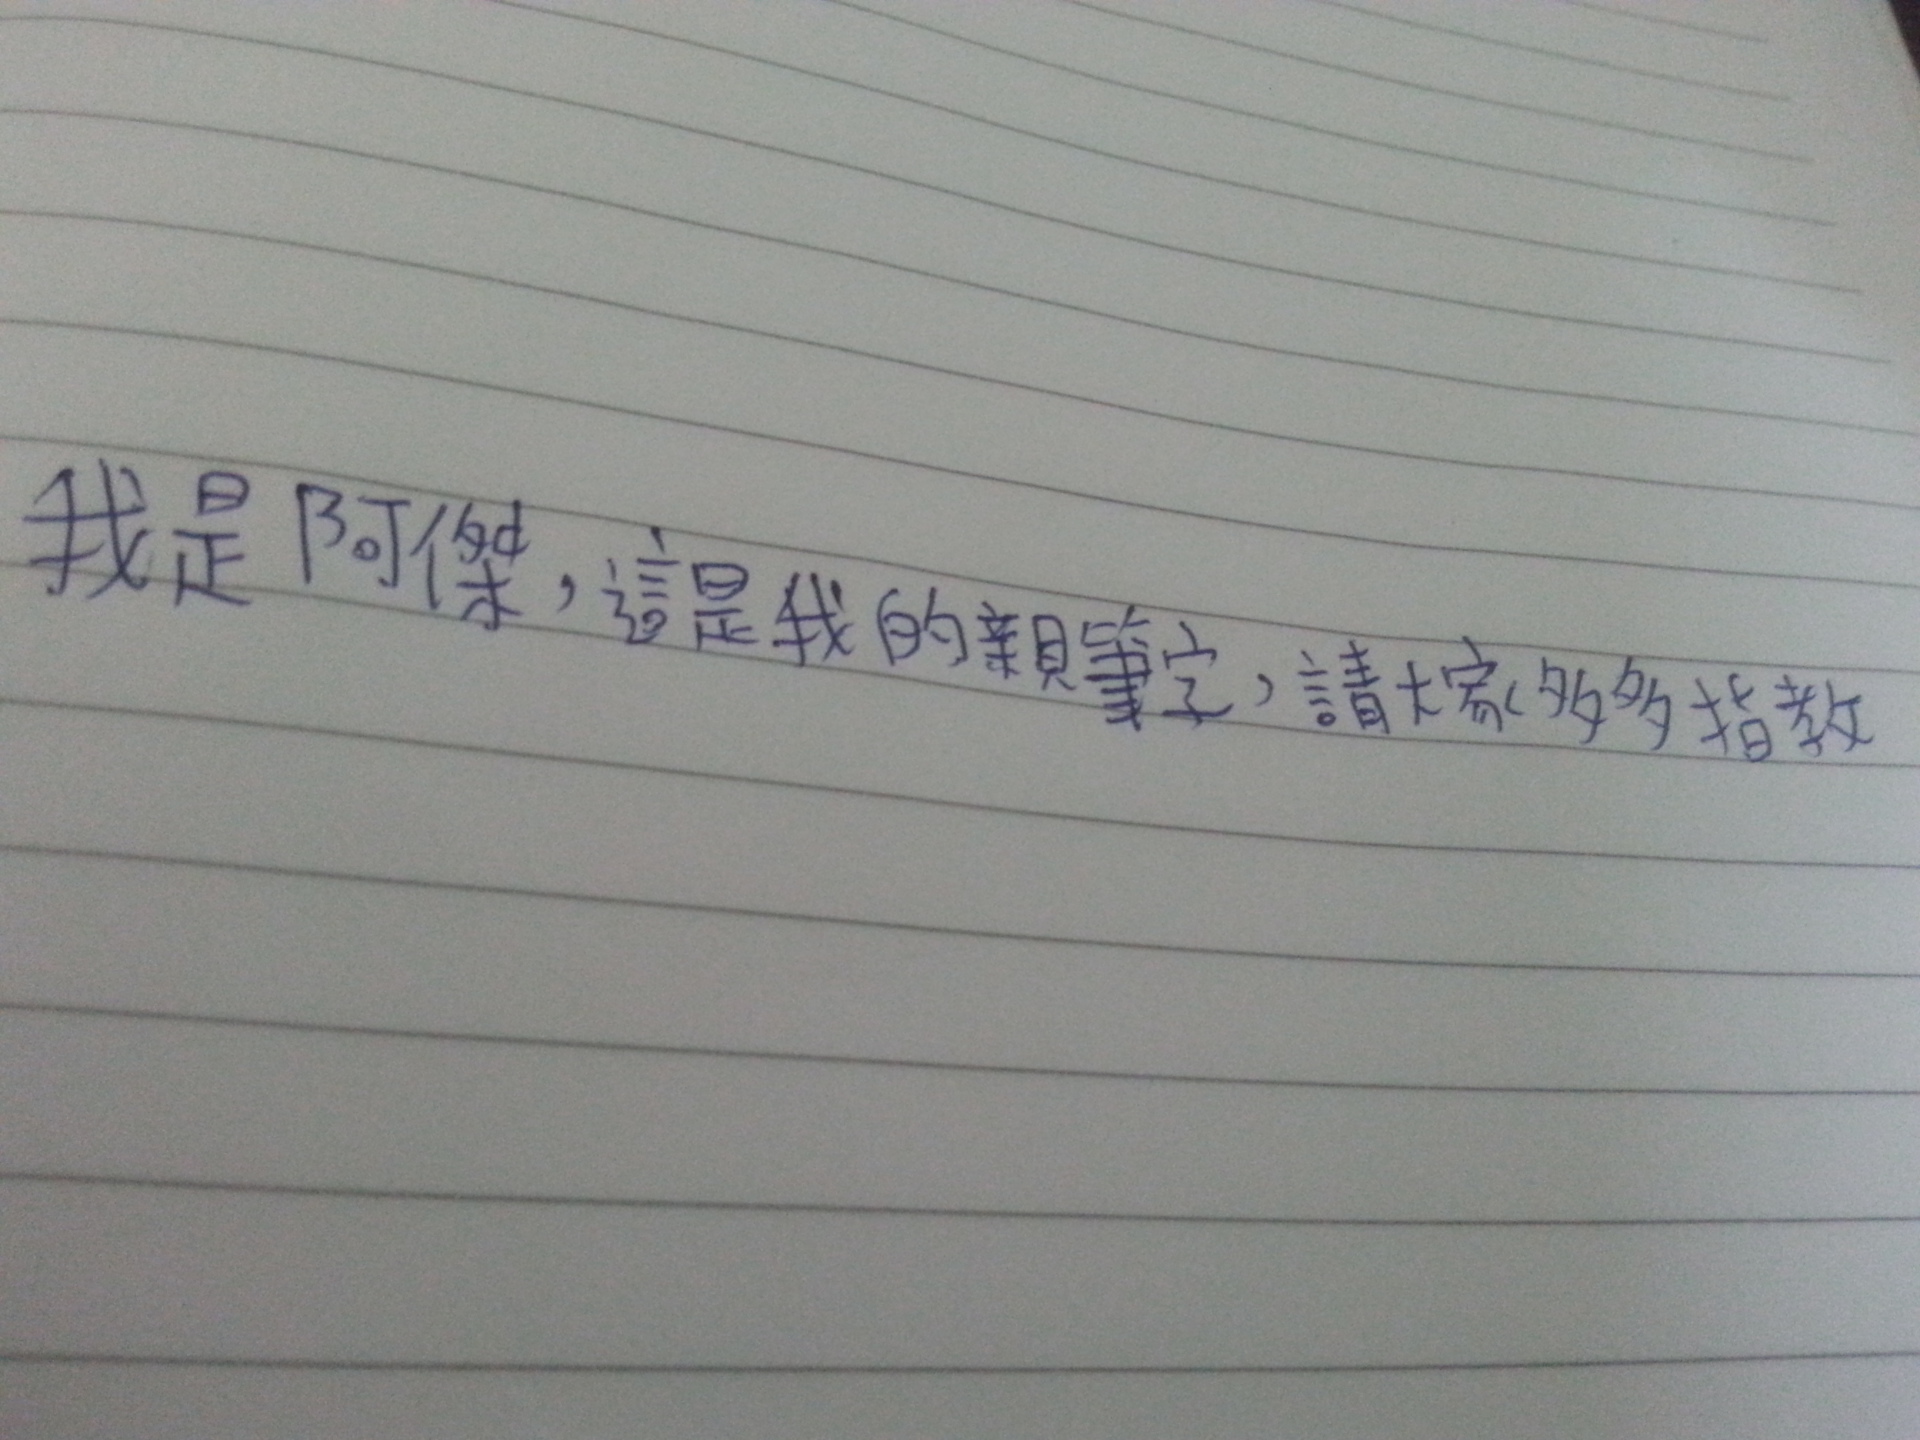 我是阿傑，這是我的親筆字，請大家多多指教